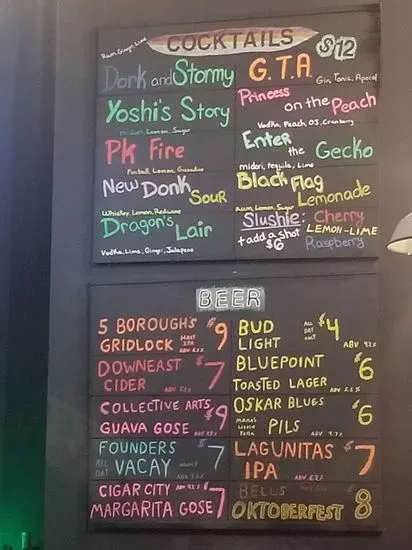 COCKTAILS $12
Rum, Ginger, Lime
Dork and Stormy
G.T.A.
Gin, Tonic, Aperol
Yoshi's Story
midori, Lemon, Sugar
Princess
on the Peach
Vodka, Peach, OJ, Cranberry
Pk Fire
Fireball, Lemon, Grenadine
Enter
the Gecko
midori, tequila, Lime
New Donk
Sour
Whiskey, Lemon, Red wine
Black Flag
Lemonade
Rum, Lemon, Sugar
Dragon's
Lair
Vodka, Lime, Ginger, Jalapeno
Slushie: Cherry
+ add a shot LEMON-LIME
$6 Raspberry
BEER
5 BOROUGHS $9
GRIDLOCK HAZY IPA
ABV
BUD ALL DAY $4
LIGHT ABV
DOWNEAST $7
CIDER ABV
BLUEPOINT $6
TOASTED LAGER ABV
COLLECTIVE ARTS $9
GUAVA GOSE ABV
OSKAR BLUES $6
MAMA'S LITTLE PILS ABV
FOUNDERS $7
ALL DAY VACAY
LAGUNITAS $7
IPA ABV
CIGAR CITY ABV $7
MARGARITA GOSE
BELLS $8
OKTOBERFEST